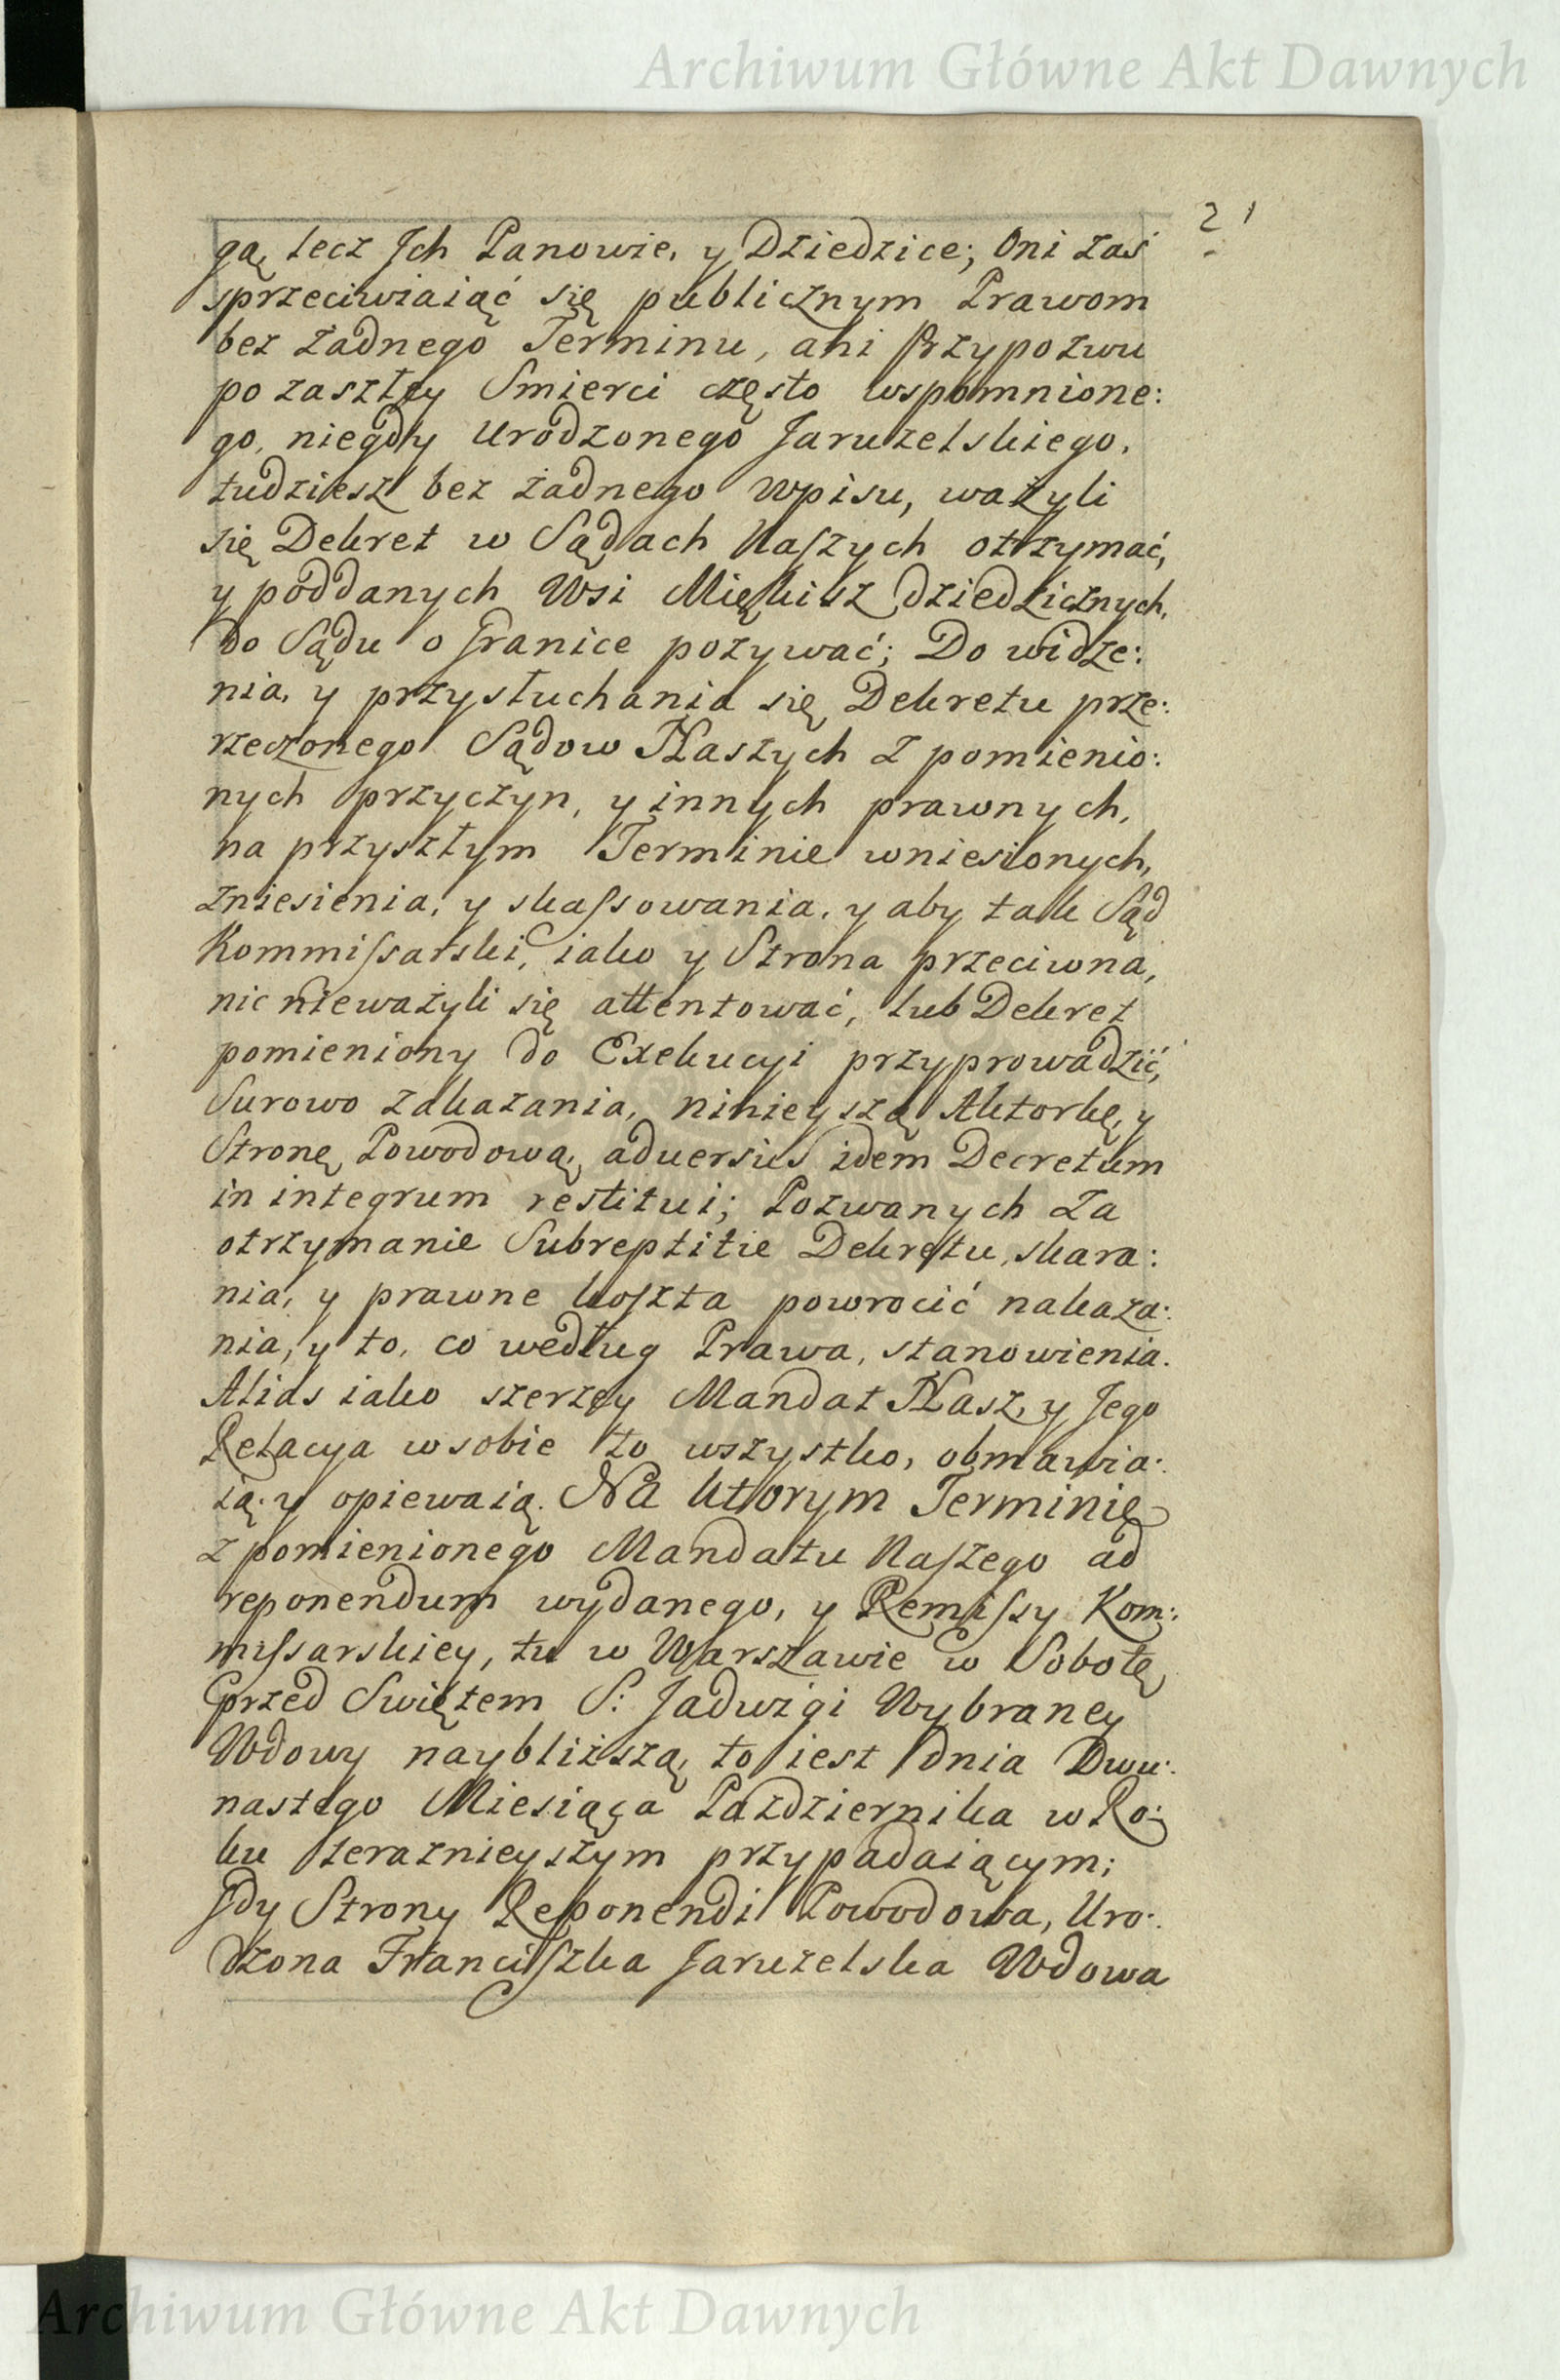 Archiwum Główne Akt Dawnych
21
gą, lecz Jch Panowie, y Dziedzice; Oni zaś
sprzeciwiaiąć się publicznym Prawom
bez żadnego Terminu, ani Przypozwu
po zaszłey Smierci często wspomnione:
go, niegdy Urodzonego Jaruzelskiego,
tudziesz bez żadnego Wpisu, ważyli
się Dekret w Sądach Naszych otrzymać,
y poddanych Wsi Miękisz dziedzicznych,
do Sądu o Granice pozywać; Do widze:
nia, y przysłuchania się Dekretu prze:
rzeczonego Sądow Naszych z pomienio:
nych przyczyn, y innych prawnych,
na przyszłym Terminie wniesionych,
zniesienia, y skassowania, y aby tak Sąd
Kommissarski, iako y Strona przeciwna,
nic nieważyli się attentować, lub Dekret
pomieniony do Exekucyi przyprowadzić,
Surowo zakazania, ninieyszą Aktorkę, y
Stronę Powodową, adversus idem Decretum
in integrum restitui; Pozwanych za
otrzymanie Subreptitie Dekretu, skara:
nia, y prawne koszta powrocić nakaza:
nia, y to, co według Prawa, stanowienia.
Alias iako szerzey Mandat Nasz, y Jego
Relacya w sobie to wszystko, obmawia:
ią, y opiewaią. Na ktorym Terminie
z pomienionego Mandatu Naszego ad
reponendum wydanego, y Remissy Kom:
missarskiey, tu w Warszawie w Sobotę
przed Swiętem S: Jadwigi Wybraney
Wdowy naybliższą, to iest dnia Dwu:
nastego Miesiąca Pazdziernika w Ro:
ku teraznieyszym przypadaiącym;
Gdy Strony Reponendi Powodowa, Uro:
dzona Franciszka Jaruzelska Wdowa
Archiwum Główne Akt Dawnych